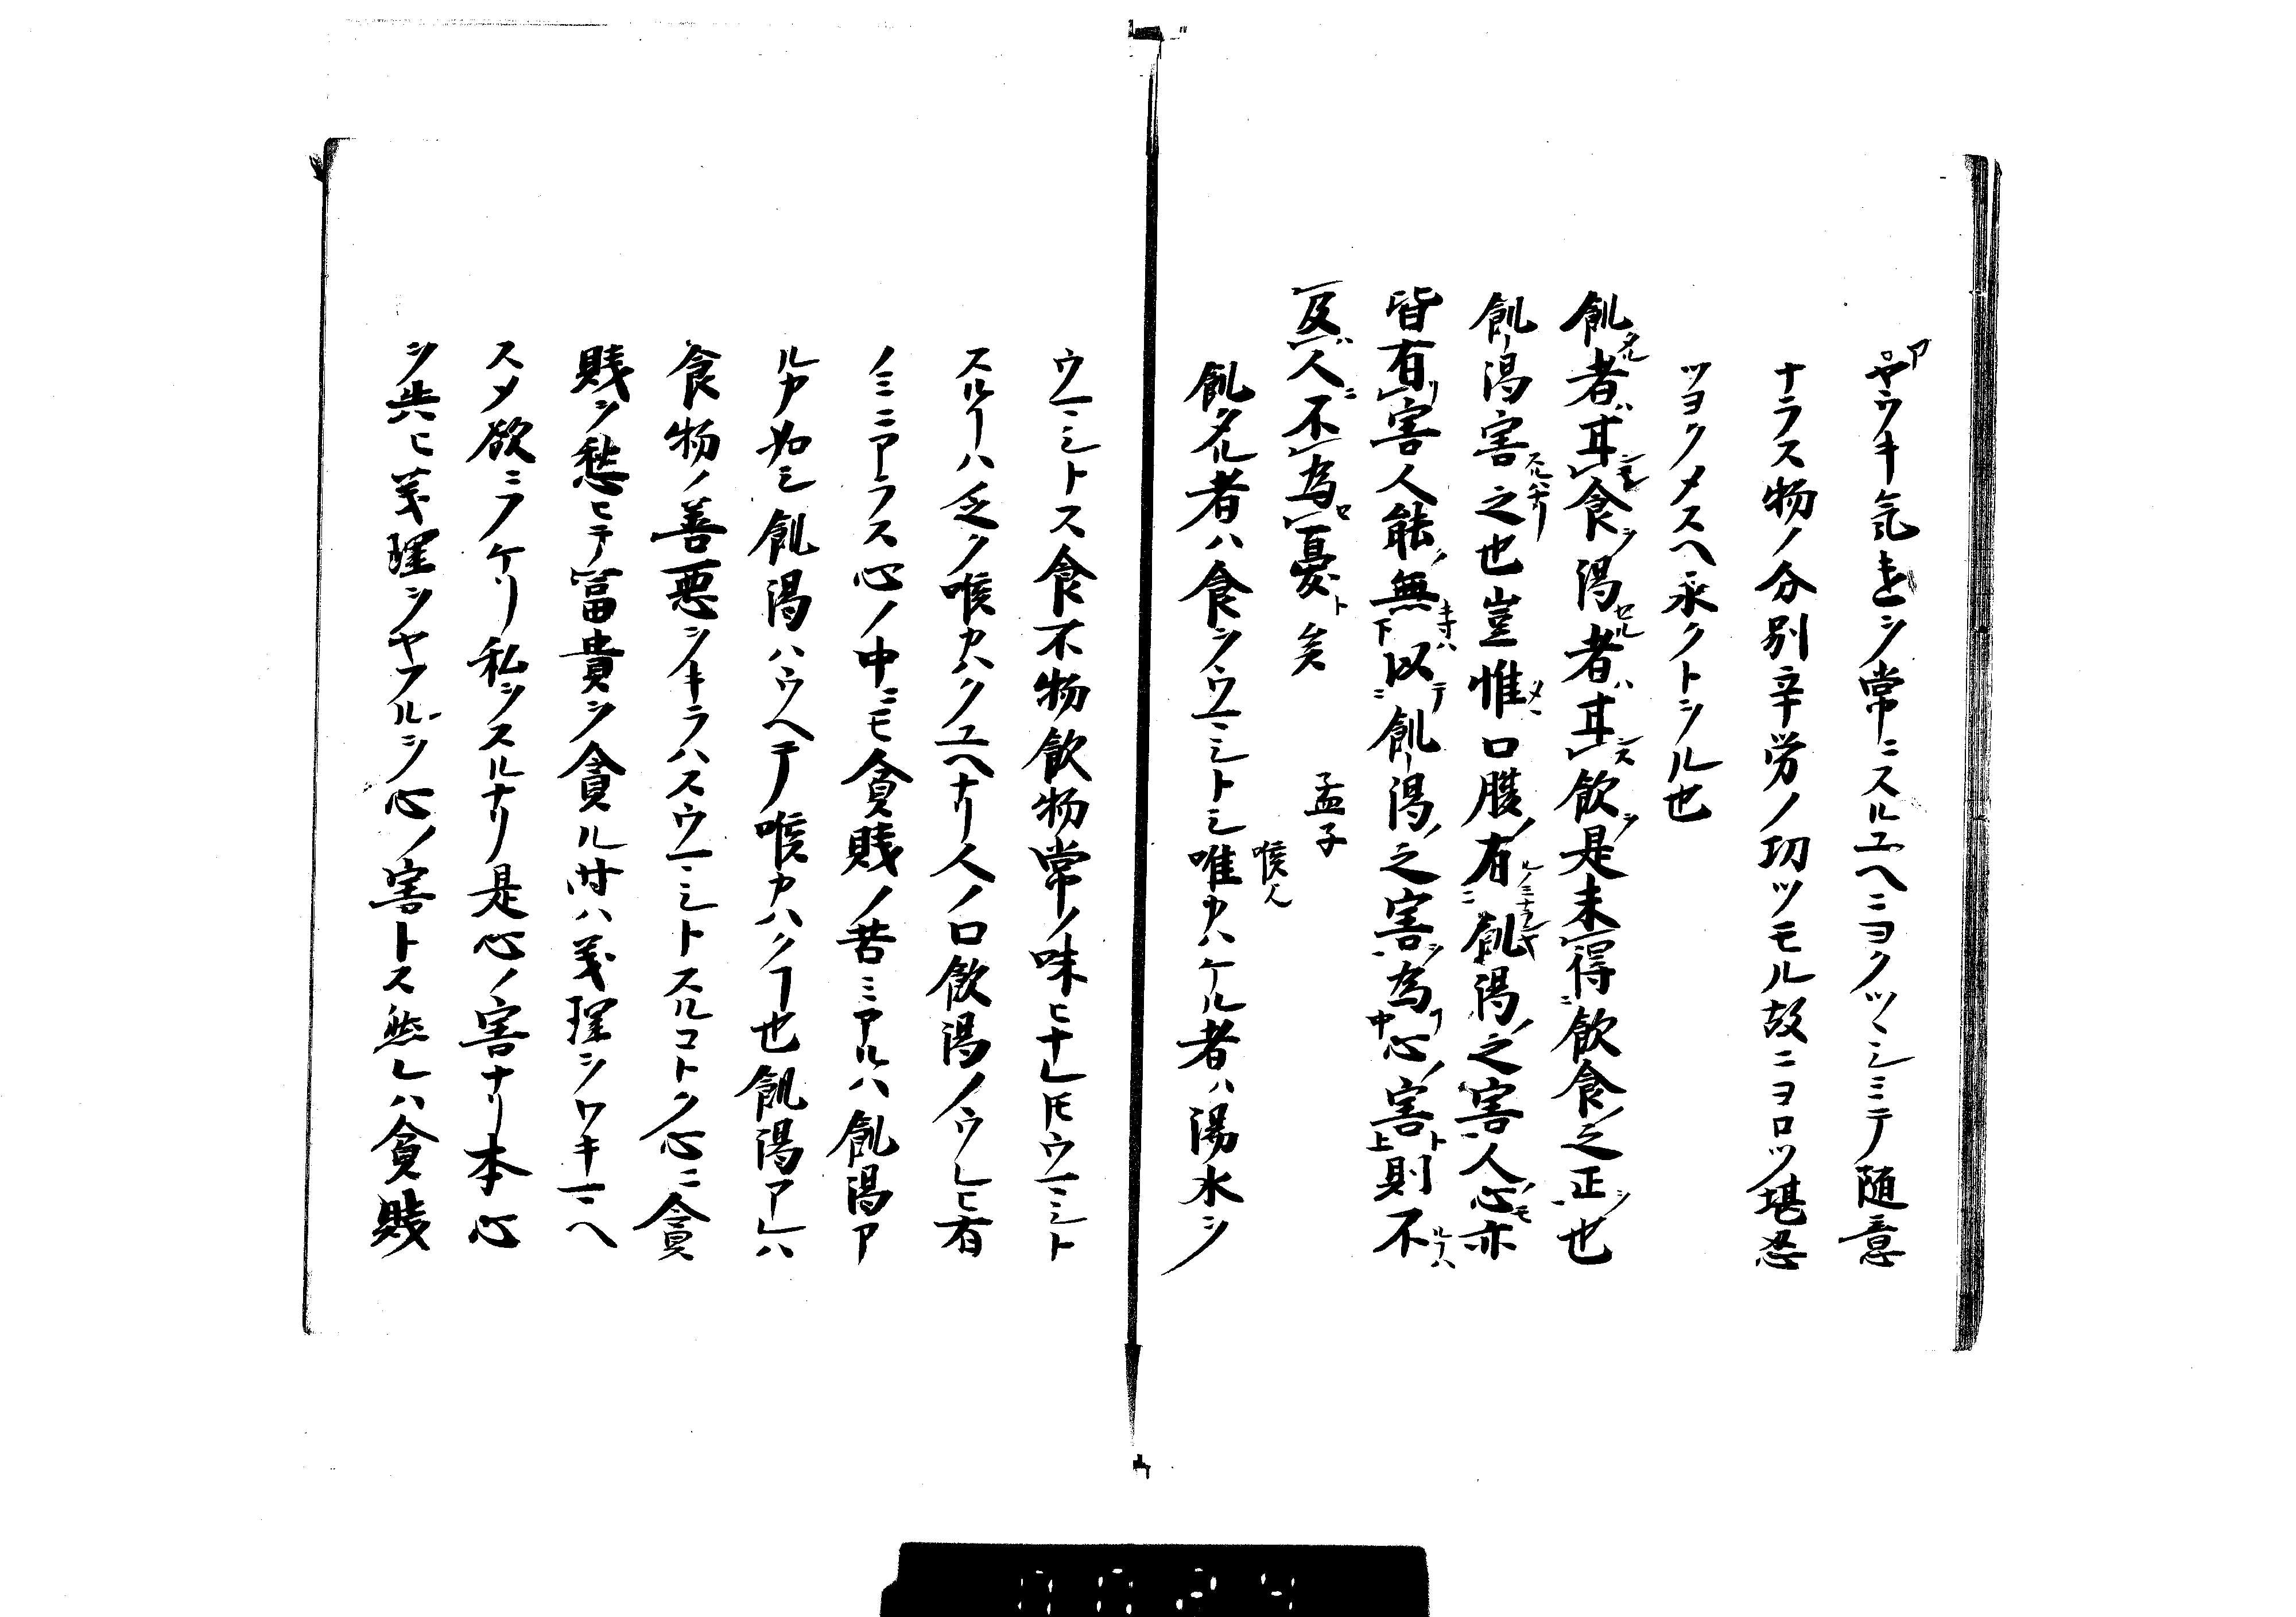 アヤウキ気遣シ常ニスルユヘニヨクツヽシミテ随意
ナラス物ノ分別辛労ノ功ツモル故ニヨロツ堪忍
ツヨクメスヘ永クトシル也
飢者甘食渇者甘飲是未得飲食之正也
飢渇害之也豈惟口腹有飢渇之害人心亦
皆有害人能無以飢渇之害為心害則不
及人不為憂矣 孟子
飢タル者ハ食ヲウマシトシ唯カハケル者ハ湯水ヲ
喉人
ウマシトス食不物飲物常ノ味ヒナレトモウマシト
スルヿハ乏ク喉カハクユヘナリ人ノ口飲渇ノウレヒ有
ノミニアラス心ノ中ニモ貪賤ノ苦ミアルハ飢渇ア
ルカ如シ飢渇ハウヘテ喉カハクヿ也飢渇アレハ
食物ノ善悪ヲキラハスウマシトスルコトク心ニ貪
賤ヲ愁ヒテ富貴ヲ貪ル時ハ義理ヲワキマヘ
スタ欲ニフケリ私ヲスルナリ是心ノ害ナリ本心
ヲ失ヒ義理ヲヤフルヲ心ノ害トス然レハ貪賤